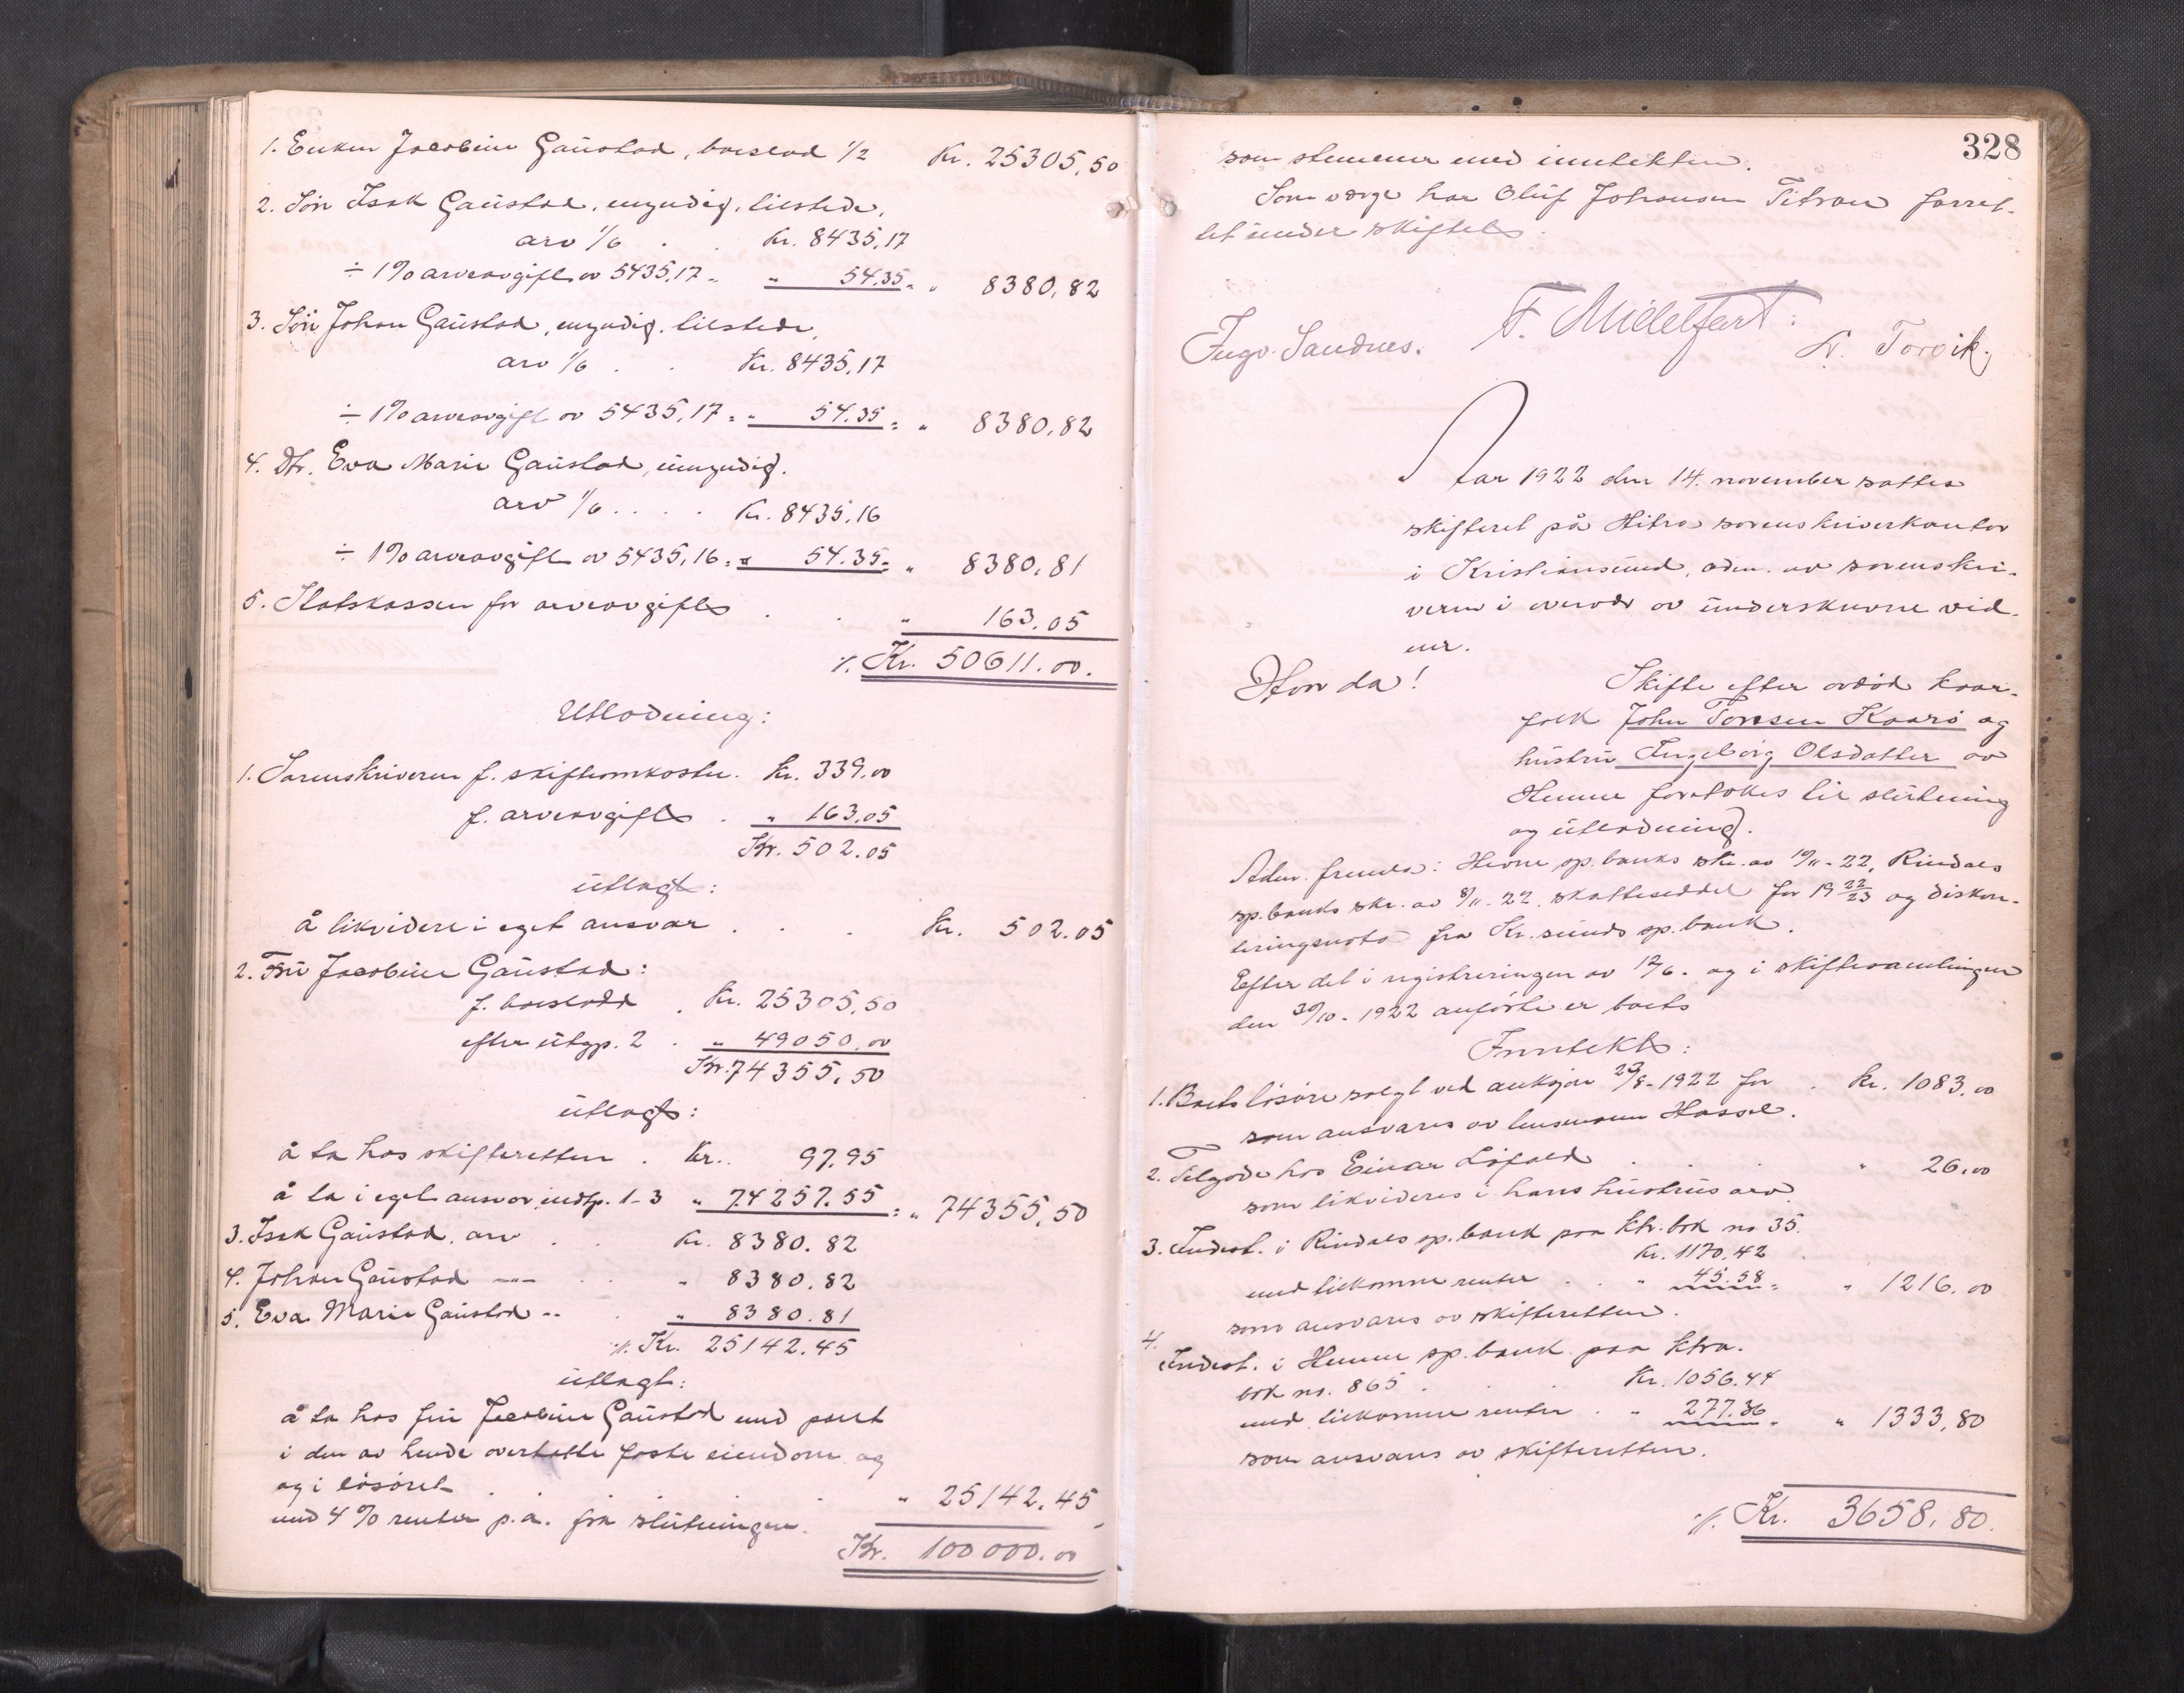 1. Enken Jacobine Gaustad, boeslod 1/2 Kr. 25305,50
2. Søn Isak Gaustad, umyndig, tilstede,
arv 1/6 . . Kr. 8435,17
÷ 1% arveavgift av 5435,17 = " 54.35 = " 8380,82
3. Søn Johan Gaustad, umyndig, tilstede,
arv 1/6 . . Kr. 8435,17
÷ 1% arveavgift av 5435,17 = " 54.35 = " 8380,82
4. Dtr. Eva Marie Gaustad, umyndig.
arv 1/6 . . . . Kr. 8435,16
÷ 1% arveavgift av 5435,16 = " 54.35 = " 8380,81
5. Statskassen for arveavgift . . " 163,05
./. Kr. 50611.00.
Utlodning:
1. Sorenskriveren f. skifteomkostn. Kr. 339.00
f. arveavgift . " 163.05
Kr. 502.05
utlagt:
å likvidere i eget ansvar . . . Kr. 502.05
2. Fru Jacobine Gaustad:
f. boeslodd . Kr. 25305,50
efter utgp. 2 . " 49050.00
Kr. 74355,50
utlagt:
å ta hos skifteretten . Kr. 97.95
å ta i eget ansvar indtp. 1-3 " 74257.55 = " 74355,50
3. Isak Gaustad, arv . . Kr. 8380.82
4. Johan Gaustad -"- . . " 8380.82
5. Eva Marie Gaustad -"- . " 8380.81
./. Kr. 25142.45
utlagt:
å ta hos fru Jacobine Gaustad med pant
i den av hende overtatte faste eiendom og
og i løsøret . . . " 25142.45
med 4% renter p.a. fra slutningen.
Kr. 100000.00
328
som stemmer med inntekten.
Som verge har Oluf Johansen Titran forret-
tet under skiftet.
F. Midelfart.
Ingv. Sandnes. N. Torvik.
Aar 1922 den 14. november sattes
skifteret på Hitra sorenskriverkontor
i Kristiansund, adm. av sorenskri-
veren i overvær av underskrevne vid-
ner.
Hvorda!
Skifte efter avdød kaar-
folk John Toresen Kaarø og
hustru Ingeborg Olsdatter av
Hemne foretokes til slutning
og utlodning.
Adm. fremla: Hevne sp. banks skr. av 10/11-22, Rindals
sp. banks skr. av 8/11-22, skatteseddel for 19 22/23 og diskon-
teringsnota fra Kr.sunds sp. bank.
Efter det i registreringen av 12/6. og i skiftesamlingen
den 30/10-1922 anførte er boets
Inntekt:
1. Boets løsøre solgt ved auksjon 29/8-1922 for . Kr. 1083.00
som ansvares av lensmann Hassel.
2. Tilgode hos Einar Løfald . . . " 26.00
som likvideres i hans hustrus arv.
3. Indest. i Rindals sp. bank paa ktr. bok no 35.
Kr. 1170.42
med tilkomne renter . . " 45.58 = " 1216.00
som ansvares av skifteretten.
4. Indest. i Hemne sp. bank paa ktra.
bok no. 865 . . . Kr. 1056.44
med tilkomne renter . " 277.36 = " 1333,80
som ansvares av skifteretten.
./. Kr. 3658.80.